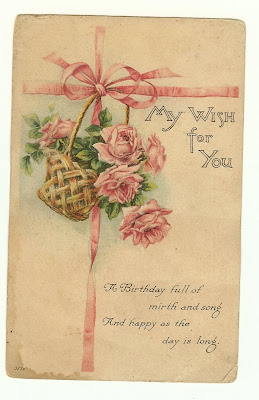 My Wish
for
You
A Birthday full of
mirth and song
And happy as the
day is long.